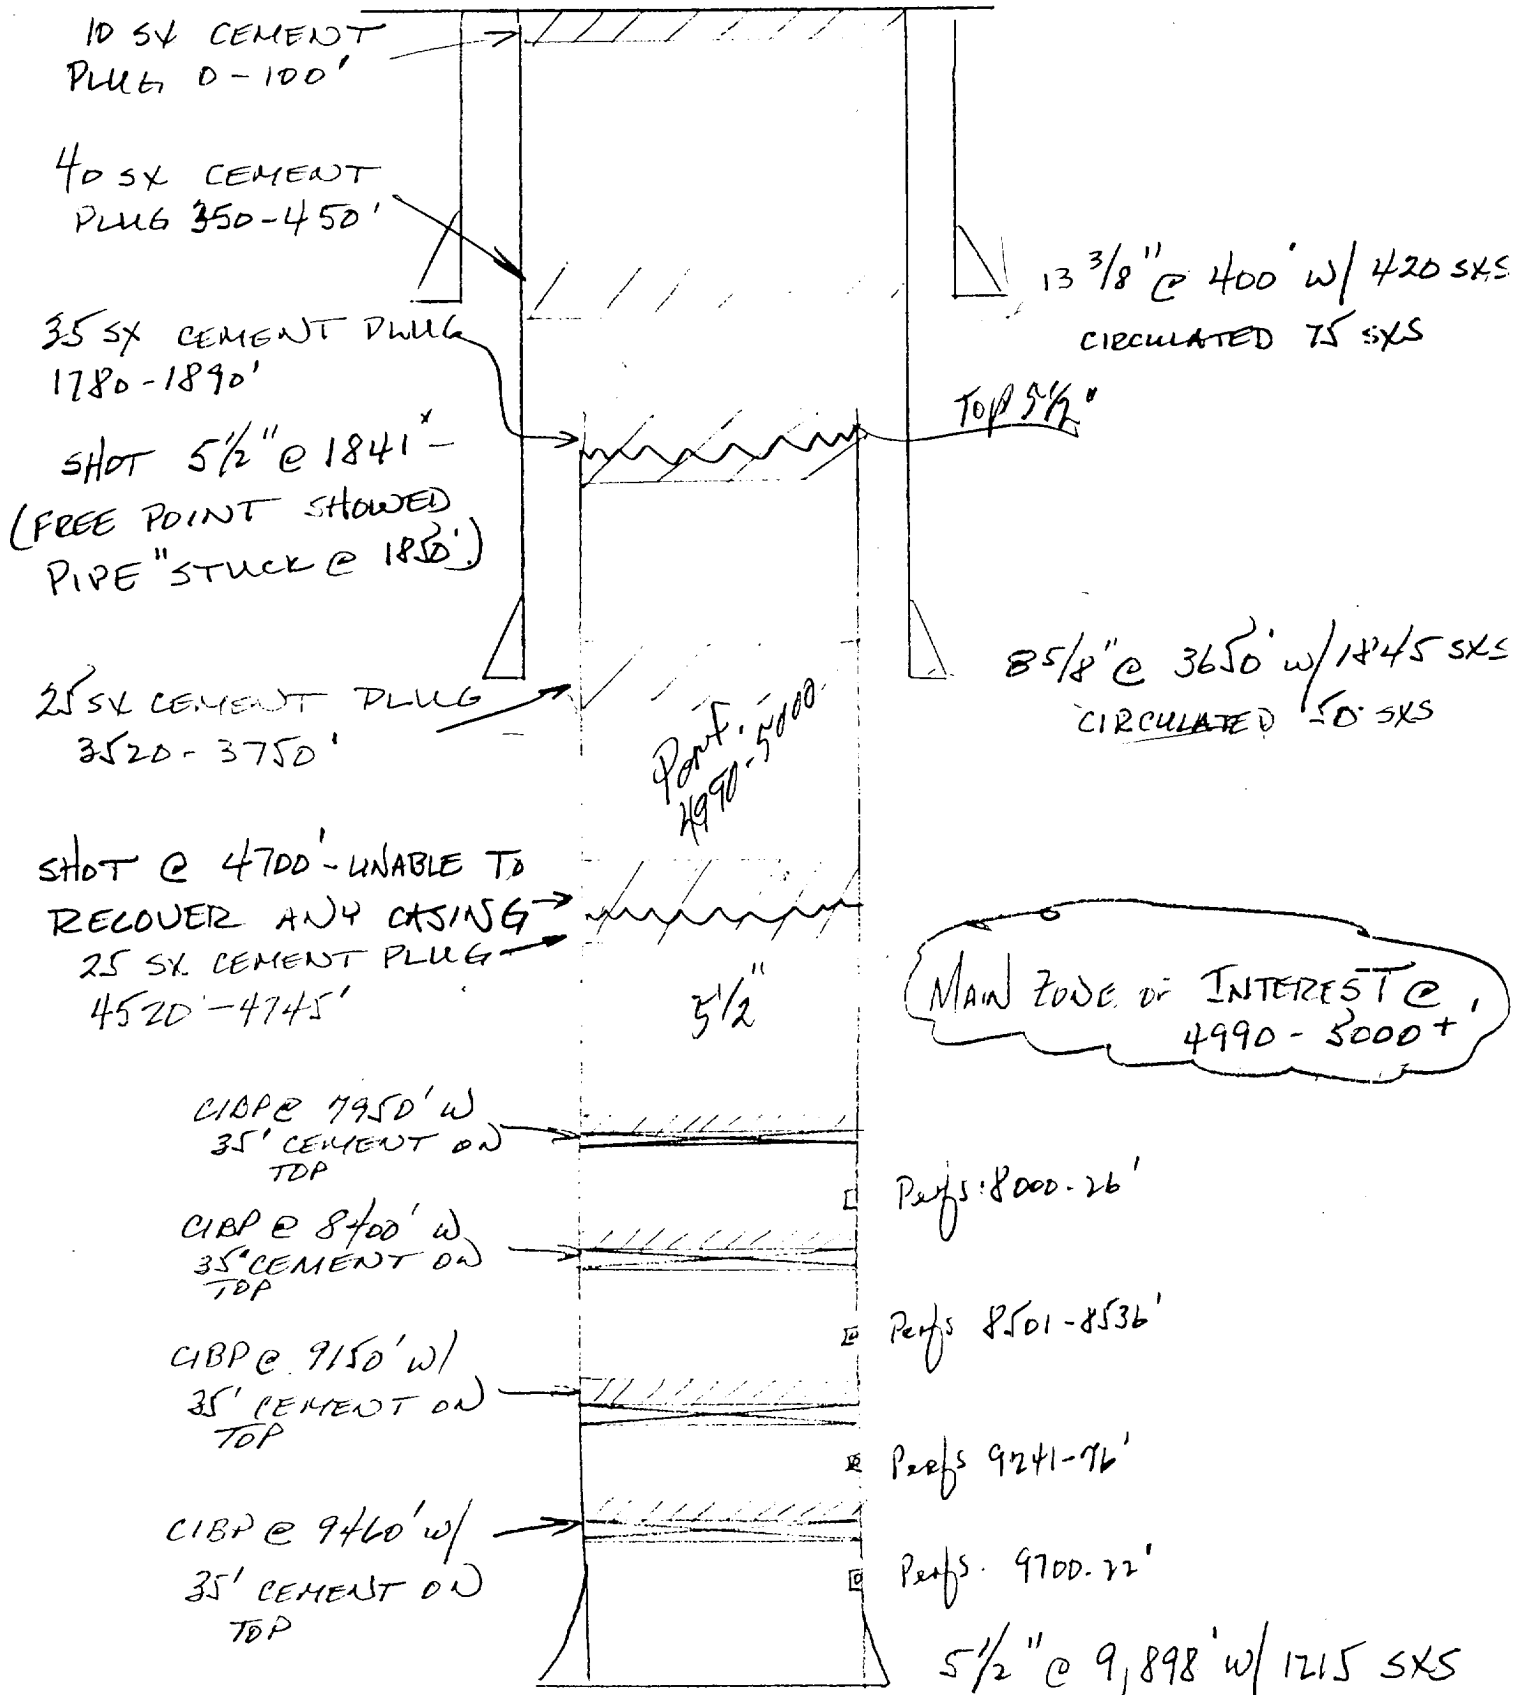 10 SX CEMENT
PLUG 0-100'
40 SX CEMENT
PLUG 350-450'
13 3/8" @ 400' W/ 420 SXS
CIRCULATED 75 SXS
35 SX CEMENT PLUG
1780-1890'
TOP 5 1/2"
SHOT 5 1/2" @ 1841' -
(FREE POINT SHOWED
PIPE "STUCK @ 1850')
8 5/8" @ 3650' W/ 1845 SXS
CIRCULATED 50 SXS
25 SX CEMENT PLUG
3520-3750'
4990-5000
SHOT @ 4700' - UNABLE TO
RECOVER ANY CASING
25 SX CEMENT PLUG
4520'-4745'
5 1/2"
MAIN ZONE OF INTEREST @
4990-5000+'
CIBP @ 7950' W
35' CEMENT ON
TOP
Perfs: 8000-26'
CIBP @ 8400' W
35' CEMENT ON
TOP
Perfs 8501-8536'
CIBP @ 9150' W/
35' CEMENT ON
TOP
Perfs 9241-76'
CIBP @ 9460' W/
35' CEMENT ON
TOP
Perfs. 9700-22'
5 1/2" @ 9,898' W/ 1215 SXS